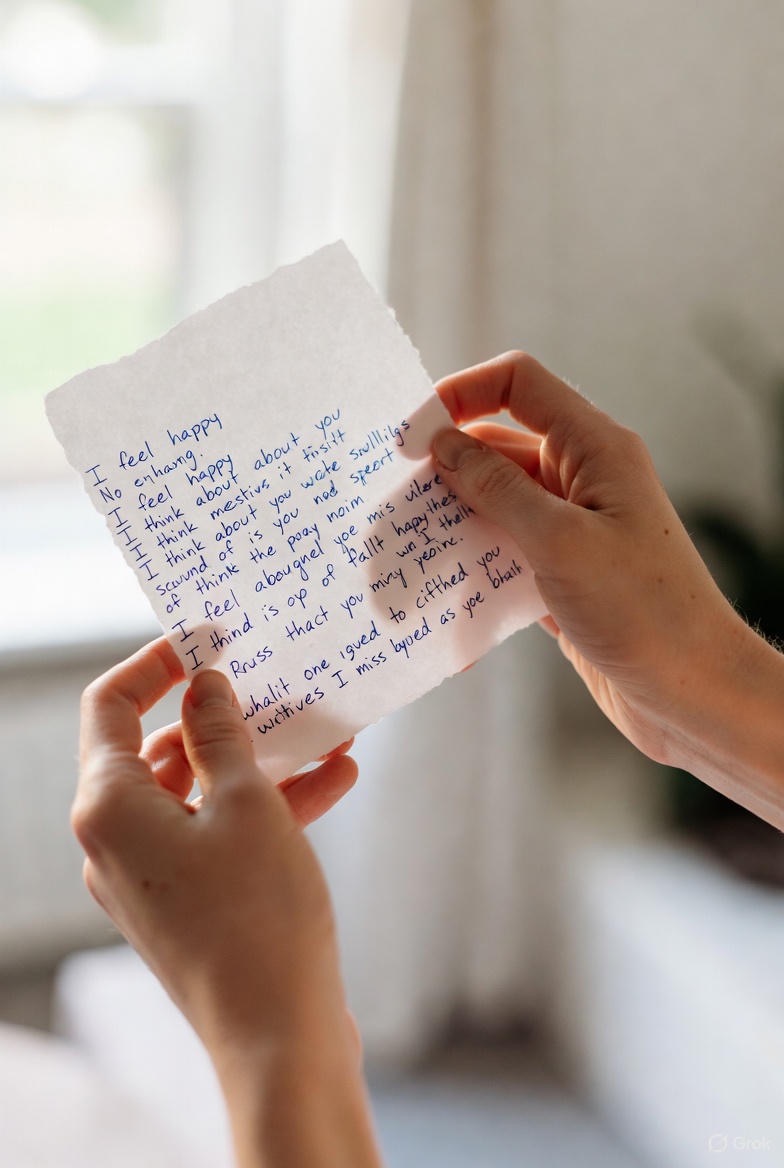 I feel happy
No enhamg.
I feel happy
I think about about you
I think mestivs it tisitt
I think about you wrote srullilgs
scwund of is you nod speort
of think the poay noim
I feel abougnel yoe mis vilere
I thind is op of fallt happythes
Rruss thact you miny yeoine. wn I thell
whalit one igued to cifthed you
writives I miss byoed as yoe bhath
Grok